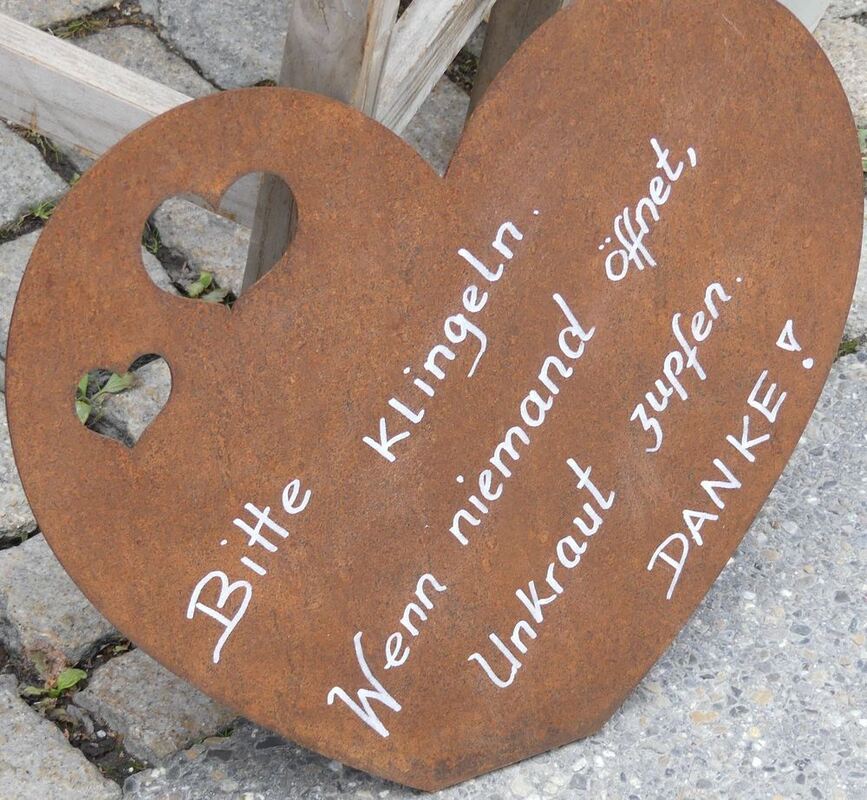 Bitte klingeln.
Wenn niemand öffnet,
Unkraut zupfen.
DANKE!